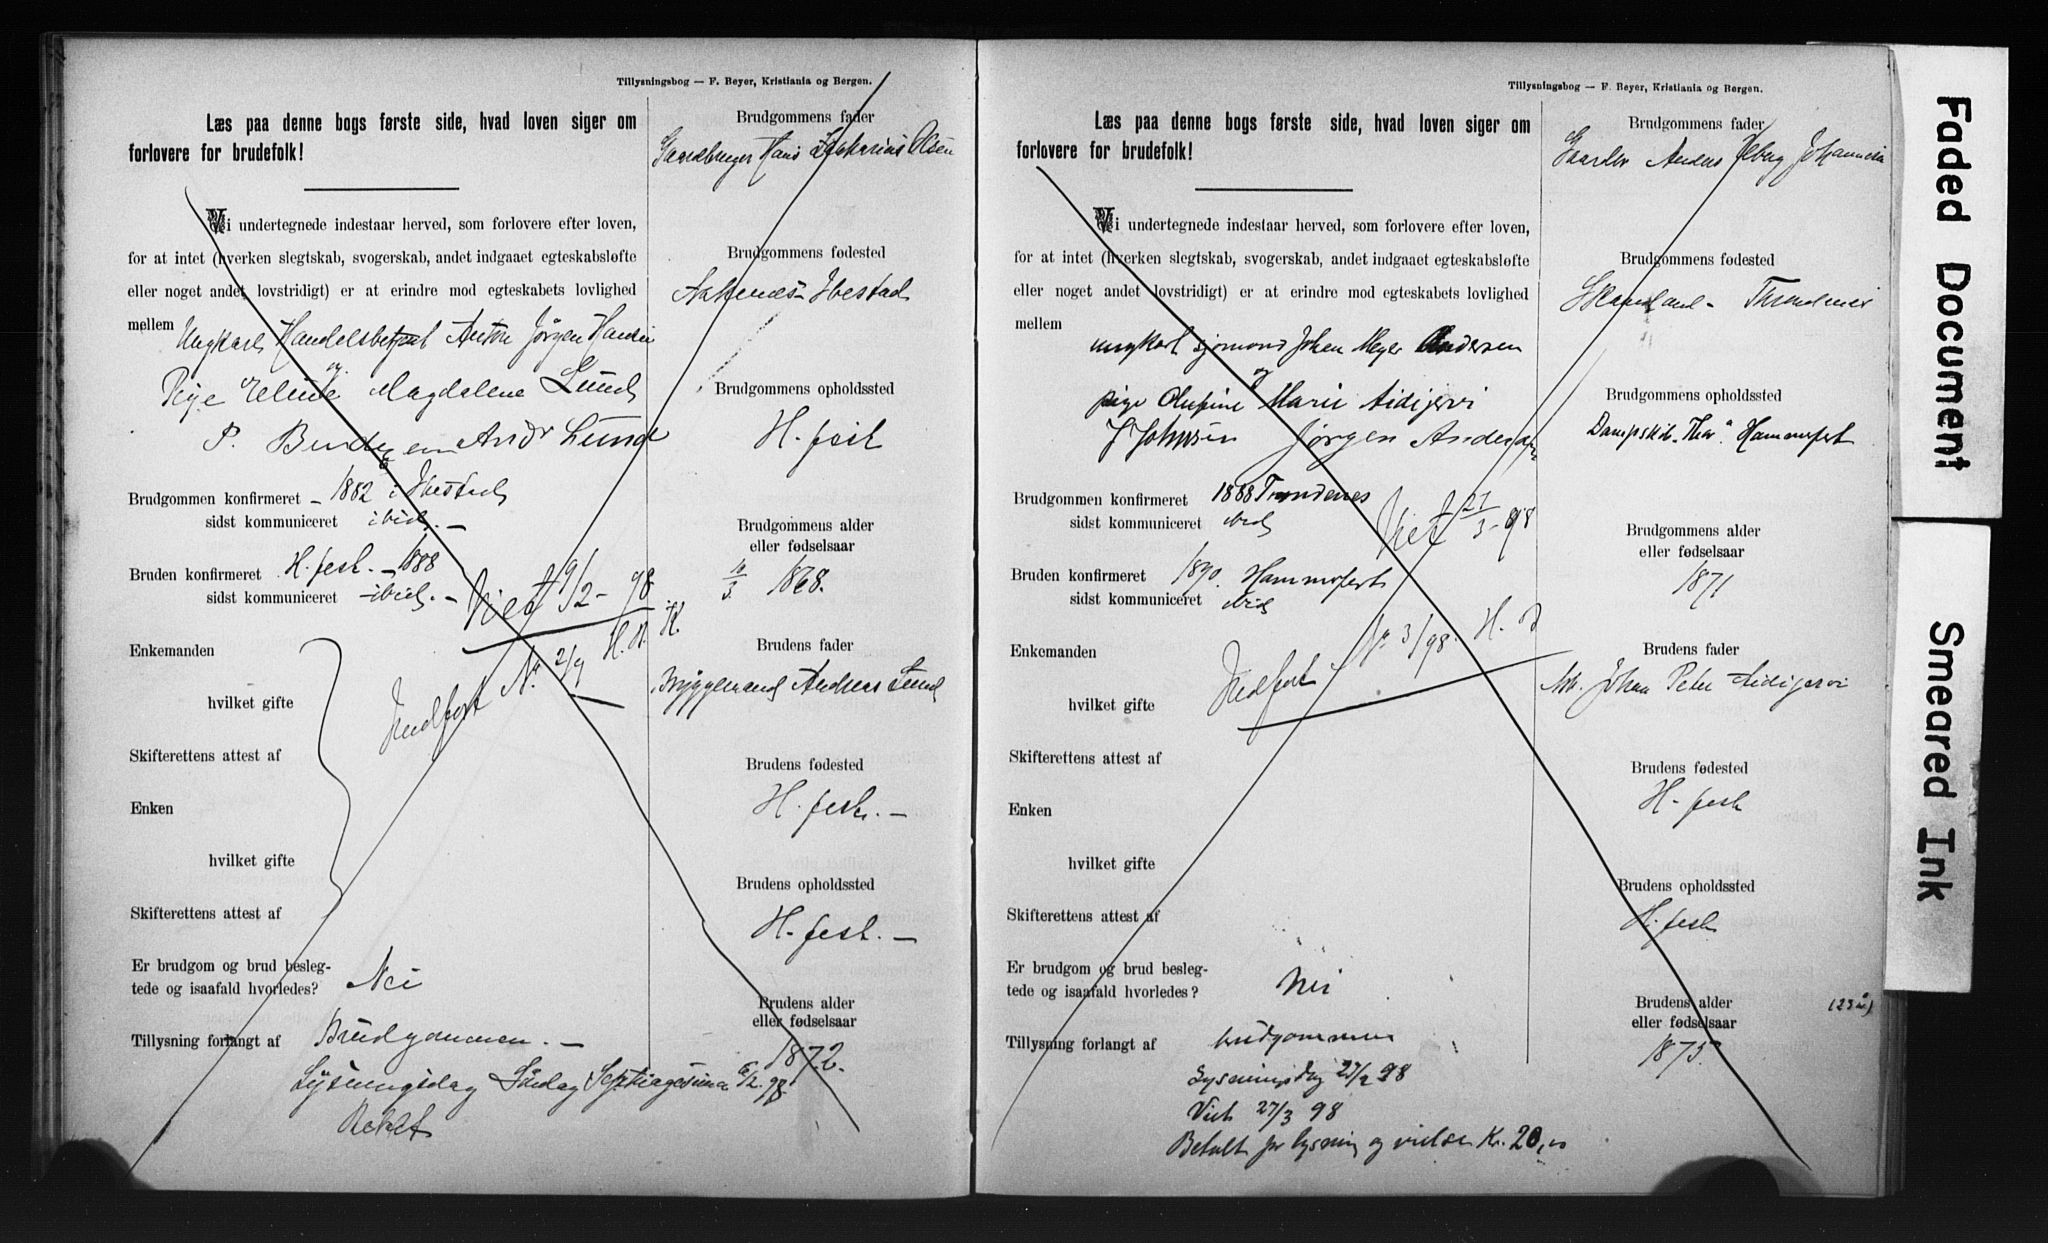 Tillysningsbog — F. Beyer, Kristiania og Bergen.
Læs paa denne bogs første side, hvad loven siger om
forlovere for brudefolk!
Vi undertegnede indestaar herved, som forlovere efter loven,
for at intet (hverken slegtskab, svogerskab, andet indgaaet egteskabsløfte
eller noget andet lovstridigt) er at erindre mod egteskabets lovlighed
mellem Ungkarl Handelsbetjent Anton Jørgen Hansen
og
Pige Magdalene Lund
Andr Lund
Brudgommen konfirmeret – 1882 i Ibestad
sidst kommuniceret ibid. –
Bruden konfirmeret H.fest. – 1888
sidst kommuniceret – ibid. –
Viet 9/2 – 98.
H. K.
Enkemanden
Indført No 2/
hvilket gifte
Skifterettens attest af
Enken
hvilket gifte
Skifterettens attest af
Er brudgom og brud besleg-
tede og isaafald hvorledes? Nei
Tillysning forlangt af Brudgommen. –
Lysningsdag Søndag Septuagesima 6/2. 98.
Betalt
Brudgommens fader
Hans Zakarias Olsen
Brudgommens fødested
Ibestad
Brudgommens opholdssted
H. fest
Brudgommens alder
eller fødselsaar
1868.
Brudens fader
Bryggemand Andreas Lund
Brudens fødested
H. fest. –
Brudens opholdssted
H. fest. –
Brudens alder
eller fødselsaar
1872.
Tillysningsbog — F. Beyer, Kristiania og Bergen.
Læs paa denne bogs første side, hvad loven siger om
forlovere for brudefolk!
Vi undertegnede indestaar herved, som forlovere efter loven,
for at intet (hverken slegtskab, svogerskab, andet indgaaet egteskabsløfte
eller noget andet lovstridigt) er at erindre mod egteskabets lovlighed
mellem
ungkarl sjømand Johan Meyer Andersen
og
pige Olufine Marie Aidijervi
J Johnsen Jørgen Andersen
Brudgommen konfirmeret 1888 Trondenes
sidst kommuniceret ibid
Viet 27/3 – 98
Bruden konfirmeret 1890. Hammerfest
sidst kommuniceret ibid
Enkemanden
Indført No 3/98.
hvilket gifte
Skifterettens attest af
Enken
hvilket gifte
Skifterettens attest af
Er brudgom og brud besleg-
tede og isaafald hvorledes? Nei
Tillysning forlangt af brudgommen
Lysningsdag 27/2 98
Viet 27/3 98
Betalt for lysning og vielse Kr. 20,00
Brudgommens fader
Anders Johannesen
Brudgommens fødested
Trondenes
Brudgommens opholdssted
Dampskib "Thor" Hammerfest
Brudgommens alder
eller fødselsaar
1871
Brudens fader
Johan Peter Aidijervi
Brudens fødested
H. fest
Brudens opholdssted
H. fest
Brudens alder
eller fødselsaar
(23 år)
1875.
Faded Document
Smeared Ink